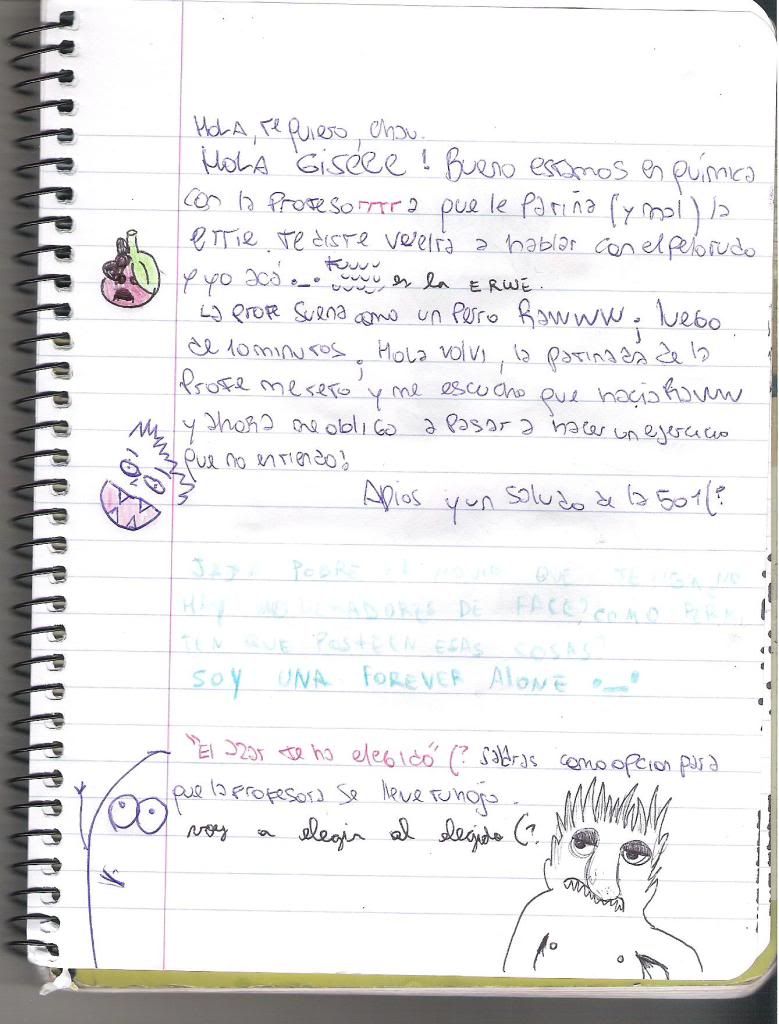 HOLA, te quiero, chau.
HOLA GISELLE! Bueno estamos en química
con la Profesorrrra que le Patina (y mal) la
errre. Te diste vuelta a hablar con el pelotudo
y yo acá ._. es la ERWE.
La profe suena como un Perro RAWWW; luego
de 10 minutos. ¡Hola volví, la patinada de la
Profe me reto y me escucho que hacia RAWW
y ahora me obligo a Pasar a hacer un ejercicio
que no entiendo!
Adios y un saludo de la 501(?
JAJA POBRE NOVIO QUE TENGA
HAY MODERADORES DE FACE, COMO PERMI
TEN QUE POSTEEN ESAS COSAS
SOY UNA FOREVER ALONE ._.
"El azar te ha elegido" (? Saldras como opcion para
que la profesora se lleve tu hoja.
voy a elegir al elegido (?